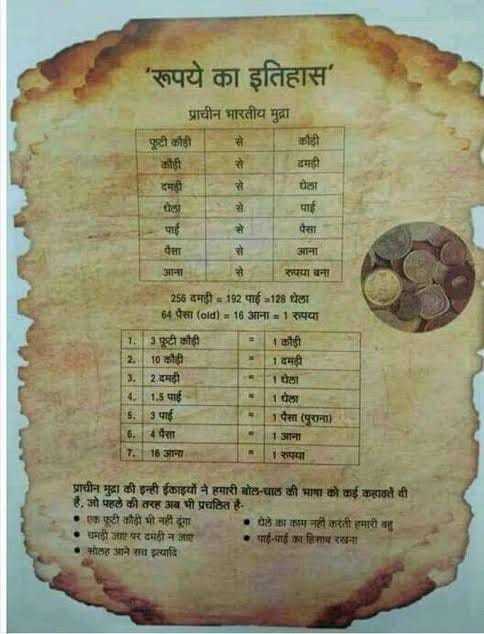 'रूपये का इतिहास'
प्राचीन भारतीय मुद्रा
फूटी कौड़ी से कौड़ी
कौड़ी से दमड़ी
दमड़ी से धेला
धेला से पाई
पाई से पैसा
पैसा से आना
आना से रुपया बना
256 दमड़ी = 192 पाई =128 धेला
64 पैसा (old) = 16 आना = 1 रुपया
1. 3 फूटी कौड़ी = 1 कौड़ी
2. 10 कौड़ी = 1 दमड़ी
3. 2 दमड़ी = 1 धेला
4. 1.5 पाई = 1 धेला
5. 3 पाई = 1 पैसा (पुराना)
6. 4 पैसा = 1 आना
7. 16 आना = 1 रुपया
प्राचीन मुद्रा की इन्ही ईकाइयों ने हमारी बोल-चाल की भाषा को कई कहावतें दी
हैं, जो पहले की तरह अब भी प्रचलित है-
• एक फूटी कौड़ी भी नहीं दूंगा
• धेले का काम नहीं करती हमारी बहु
• चमड़ी जाए पर दमड़ी न जाए
• पाई-पाई का हिसाब रखना
• सोलह आने सच इत्यादि